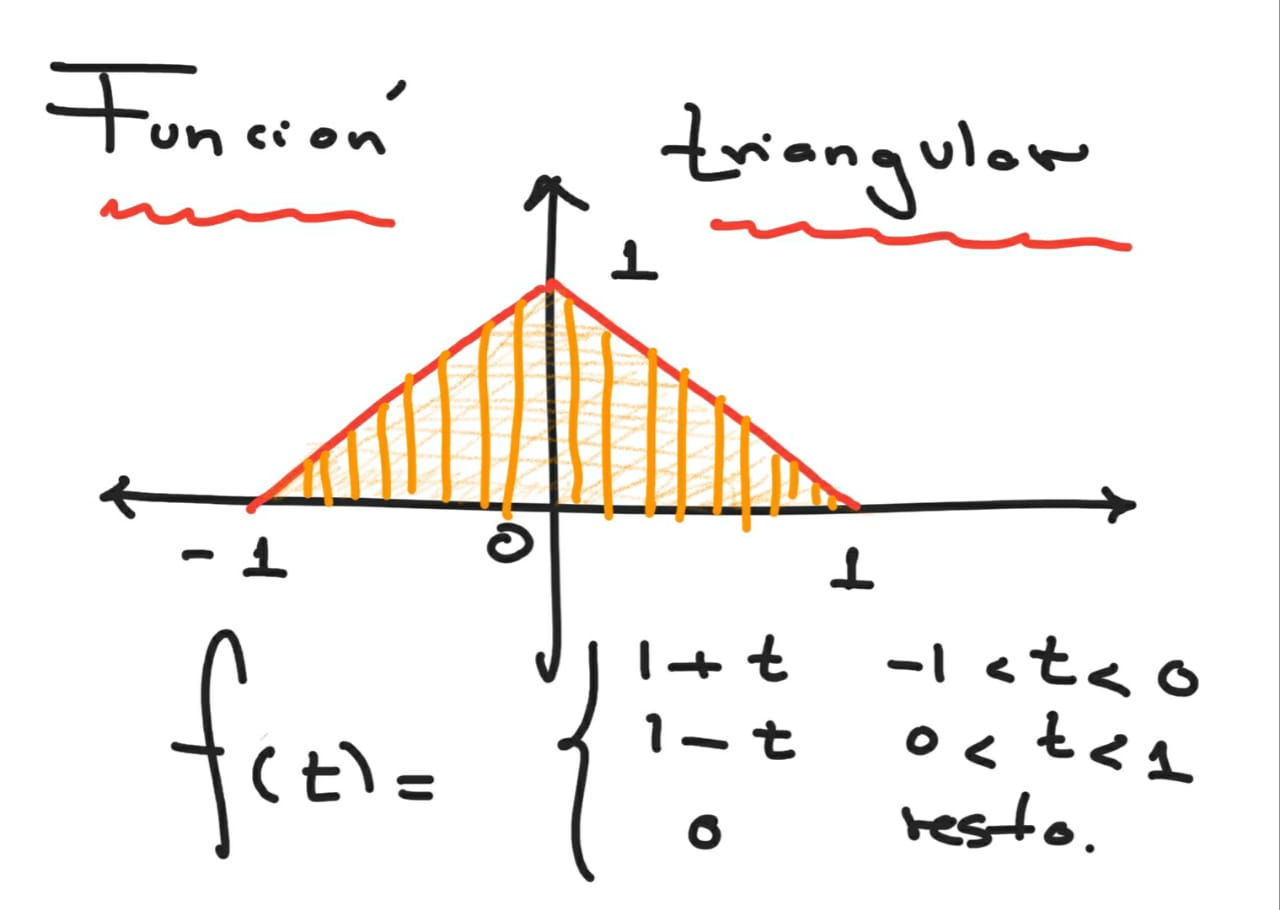 Función triangular
1
-1 0 1
f(t) = { 1 + t -1 < t < 0
1 - t 0 < t < 1
0 resto.